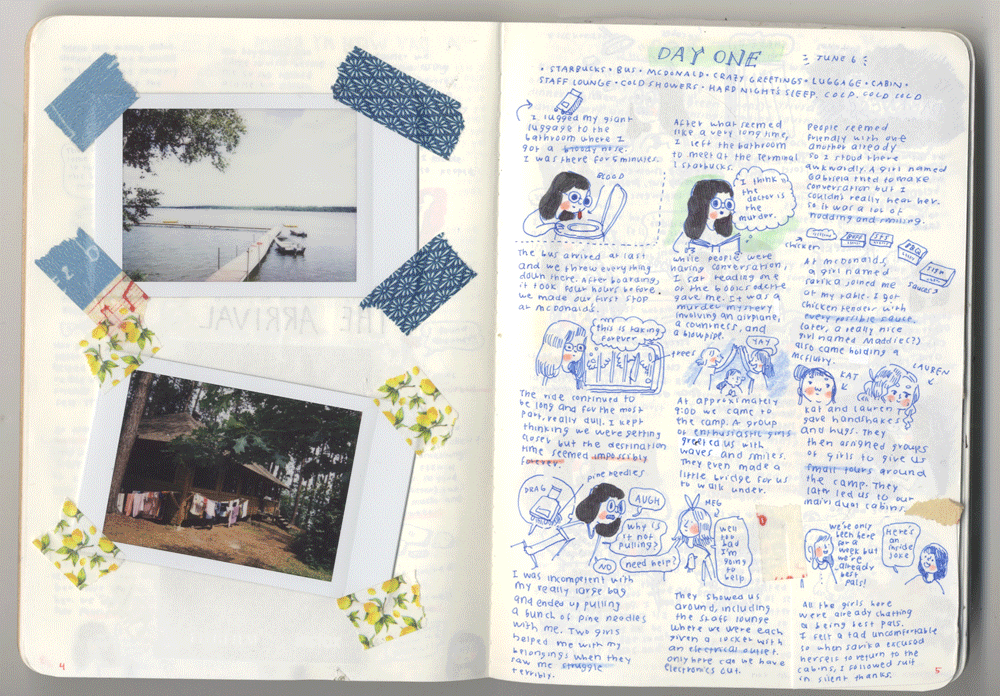 THE ARRIVAL
4
DAY ONE
JUNE 6
• STARBUCKS • BUS • MCDONALD • CRAZY GREETINGS • LUGGAGE • CABIN •
STAFF LOUNGE • COLD SHOWERS • HARD NIGHT'S SLEEP, COLD, COLD COLD
I lugged my giant
luggage to the
bathroom where I
got a bloody nose.
I was there for 5 minutes.
BLOOD
After what seemed
like a very long time,
I left the bathroom
to meet at the Terminal
1 Starbucks.
I think
the
doctor is
the
murder.
People seemed
friendly with one
another already
so I stood there
awkwardly. A girl named
Gabriela tried to make
conversation but I
couldn't really hear her.
so it was a lot of
nodding and smiling.
The bus arrived at last
and we threw everything
down there. After boarding,
it took four hours before
we made our first stop
at mcdonald's.
this is taking
forever
while people were
having conversation,
I sat reading one
of the books odette
gave me. It was a
murder mystery
involving an airplane,
a countness, and
a blowpipe.
trees
YAY
chicken
BBQ
sauces
At mcdonalds
a girl named
sarika joined me
at my table. I got
chicken tenders with
every possible sauce.
Later, a really nice
girl named Maddie(?)
also came holding a
mcflurry.
KAT
LAUREN
The ride continued to
be long and for the most
part, really dull. I kept
thinking we were getting
closer but the destination
time seemed impossibly
forever.
DRAG
pine needles
AUGH
why is
it not
pulling?
NO
need help?
At approximately
9:00 we came to
the camp. A group
of enthusiastic girls
greeted us with
waves and smiles.
They even made a
little bridge for us
to walk under.
MEG
well
too
bad
I'm
going
to
help
Kat and Lauren
gave handshakes
and hugs. They
then assigned groups
of girls to give us
small tours around
the camp. They
later led us to our
individual cabins.
we've only
been here
for a
week but
we're
already
best
pals!
Here's
an
inside
joke
I was incompetent with
my really large bag
and ended up pulling
a bunch of pine needles
with me. Two girls
helped me with my
belongings when they
saw me struggle
terribly.
They showed us
around, including
the staff lounge
where we were each
given a locker with
an electrical outlet.
only here can we have
electronics out.
All the girls here
were already chatting
& being best pals.
I felt a tad uncomfortable
so when sarika excused
herself to return to the
cabins, I followed suit
in silent thanks.
5